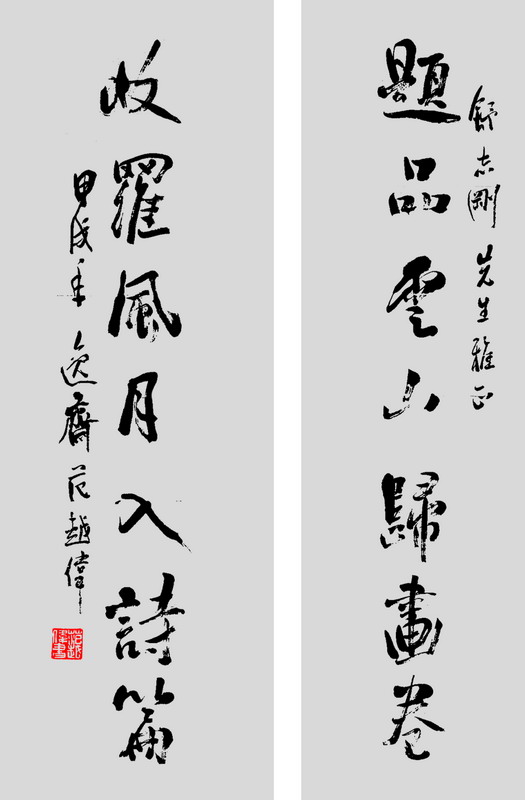 舒志剛先生雅正
題品雲山歸畫卷
收羅風月入詩篇
甲戌年逸齋范越偉
范越偉書